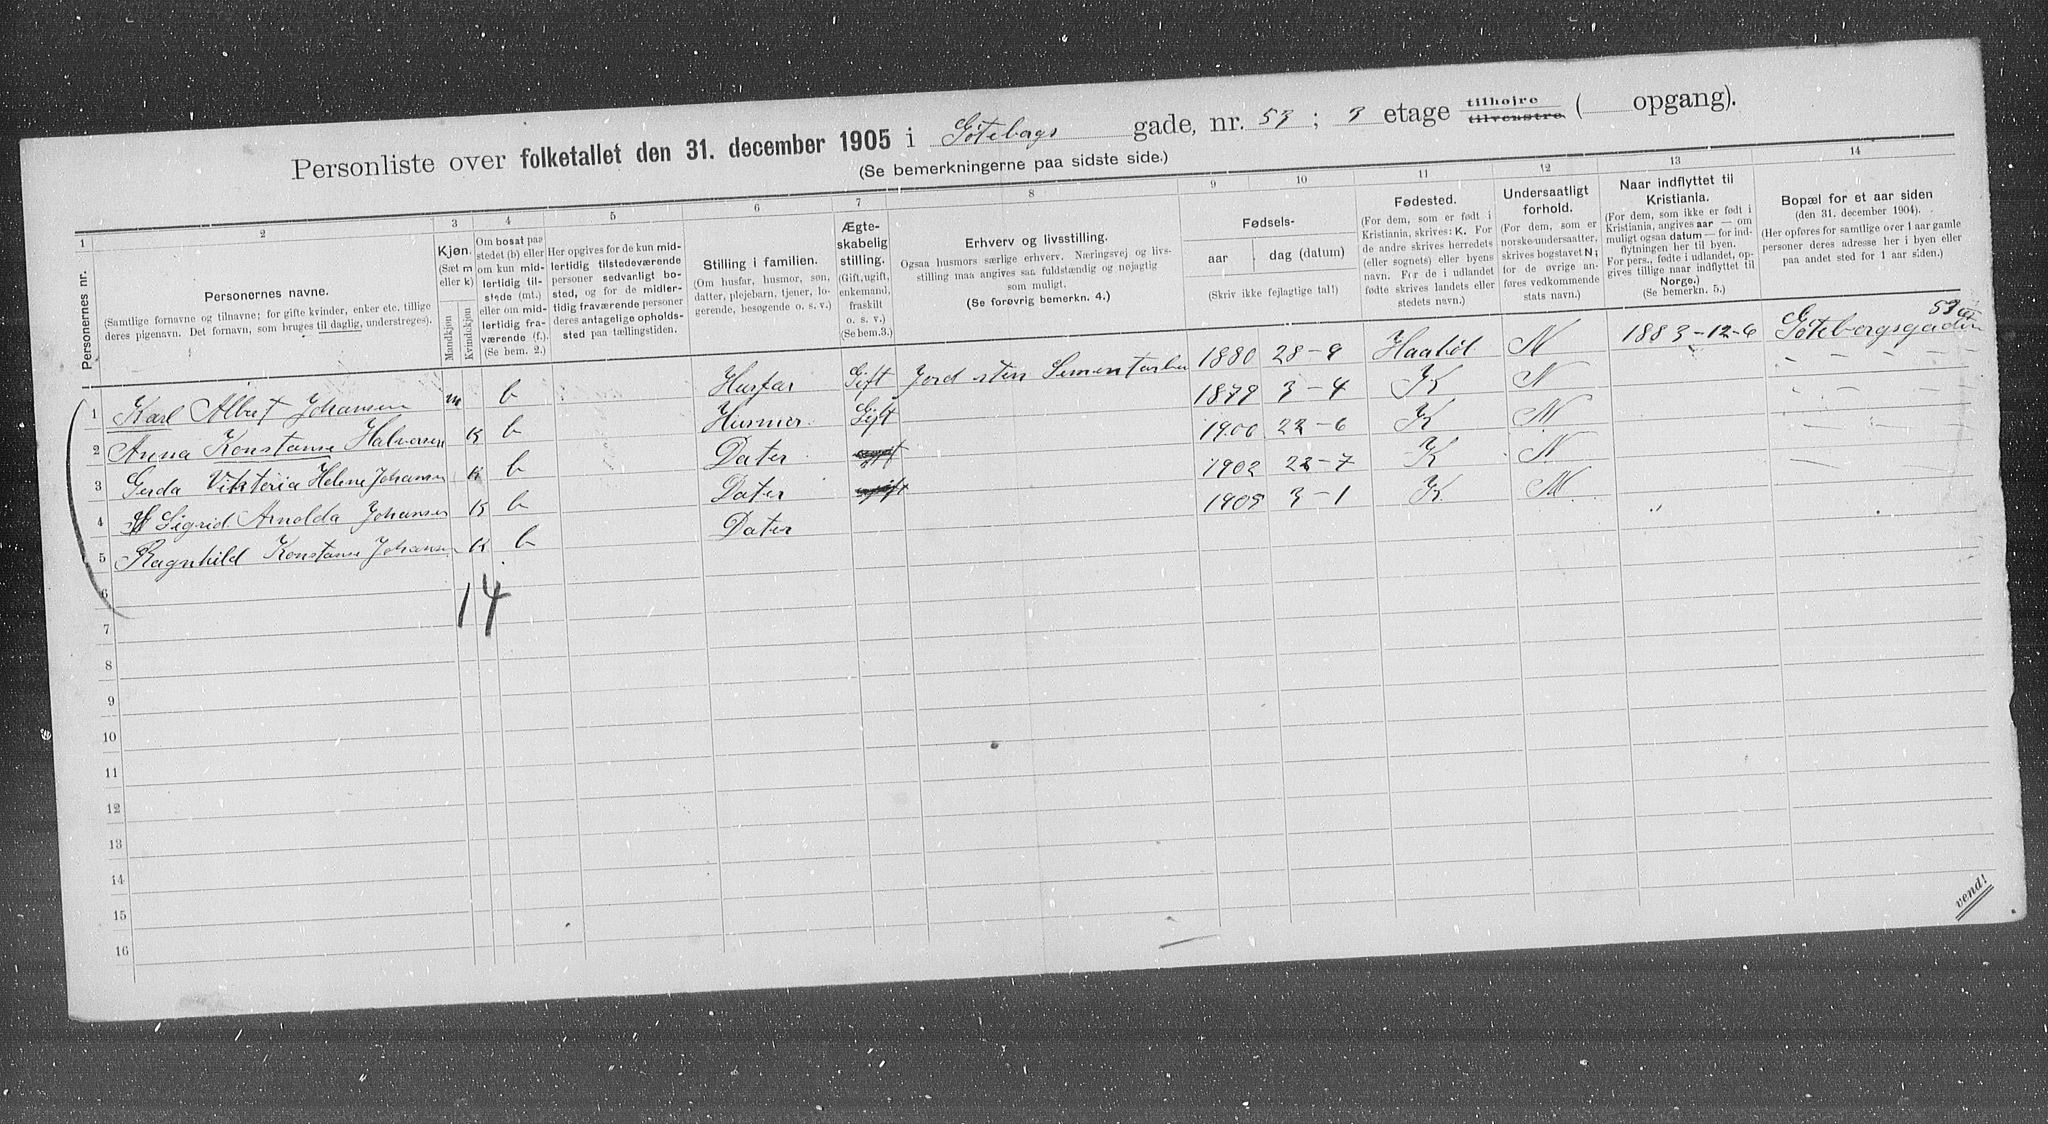 Personliste over folketallet den 31. december 1905 i Göteborgs gade, nr. 53; 3 etage tilhøjre tilvenstre ( opgang).
(Se bemerkningerne paa sidste side.)
1 2 3 4 5 6 7 8 9 10 11 12 13 14
Personernes nr.
Personernes navne.
(Samtlige fornavne og tilnavne; for gifte kvinder, enker etc. tillige deres pigenavn. Det fornavn, som bruges til daglig, understreges).
Kjøn.
(Sæt m eller k)
Mandkjøn
Kvindekjøn
Om bosat paa stedet (b) eller om kun midlertidig tilstede (mt.) eller om midlertidig fraværende (f.). (Se bem. 2.)
Her opgives for de kun midlertidig tilstedeværende personer sedvanligt bosted, og for de midlertidig fraværende personer deres antagelige opholdssted paa tællingstiden.
Stilling i familien.
(Om husfar, husmor, søn, datter, plejebarn, tjener, logerende, besøgende o. s. v.)
Ægteskabelig stilling.
(Gift, ugift, enkemand, fraskilt o. s. v.)
(Se bem. 3.)
Erhverv og livsstilling.
Ogsaa husmors særlige erhverv. Næringsvej og livsstilling maa angives saa fuldstændig og nøjagtig som muligt.
(Se forøvrig bemerkn. 4.)
Fødsels-
aar
dag (datum)
(Skriv ikke fejlagtige tal!)
Fødested.
(For dem, som er født i Kristiania, skrives: K. For de andre skrives herredets (eller sognets) eller byens navn. For de i udlandet fødte skrives landets eller stedets navn.)
Undersaatligt forhold.
(For dem, som er norske undersaatter, skrives bogstavet N; for de øvrige anføres vedkommende stats navn.)
Naar indflyttet til Kristiania.
(For dem, som ikke er født i Kristiania, angives aar — om muligt ogsaa datum — for indflytningen her til byen. For pers., fødte i udlandet, opgives tillige naar indflyttet til Norge.)
(Se bemerkn. 5.)
Bopæl for et aar siden
(den 31. december 1904).
(Her opføres for samtlige over 1 aar gamle personer deres adresse her i byen eller paa andet sted for 1 aar siden.)
1 Karl Albert Johansen m b Husfar Gift Jord sten Sementarbei 1880 28-9 Haabøl N 1883-12-6 Göteborgsgaden 53
2 Anna Konstanse Halvorsen K b Husmor. Gift 1879 3-4 K N
3 Gerda Viktoria Helene Johansen K b Dater 1900 22-6 K N
4 Sigrid Arnolda Johansen K b Dater 1902 22-7 K N
5 Ragnhild Konstanse Johansen K b Dater 1905 3-1 K N
6
14
7
8
9
10
11
12
13
14
15
16
vend!